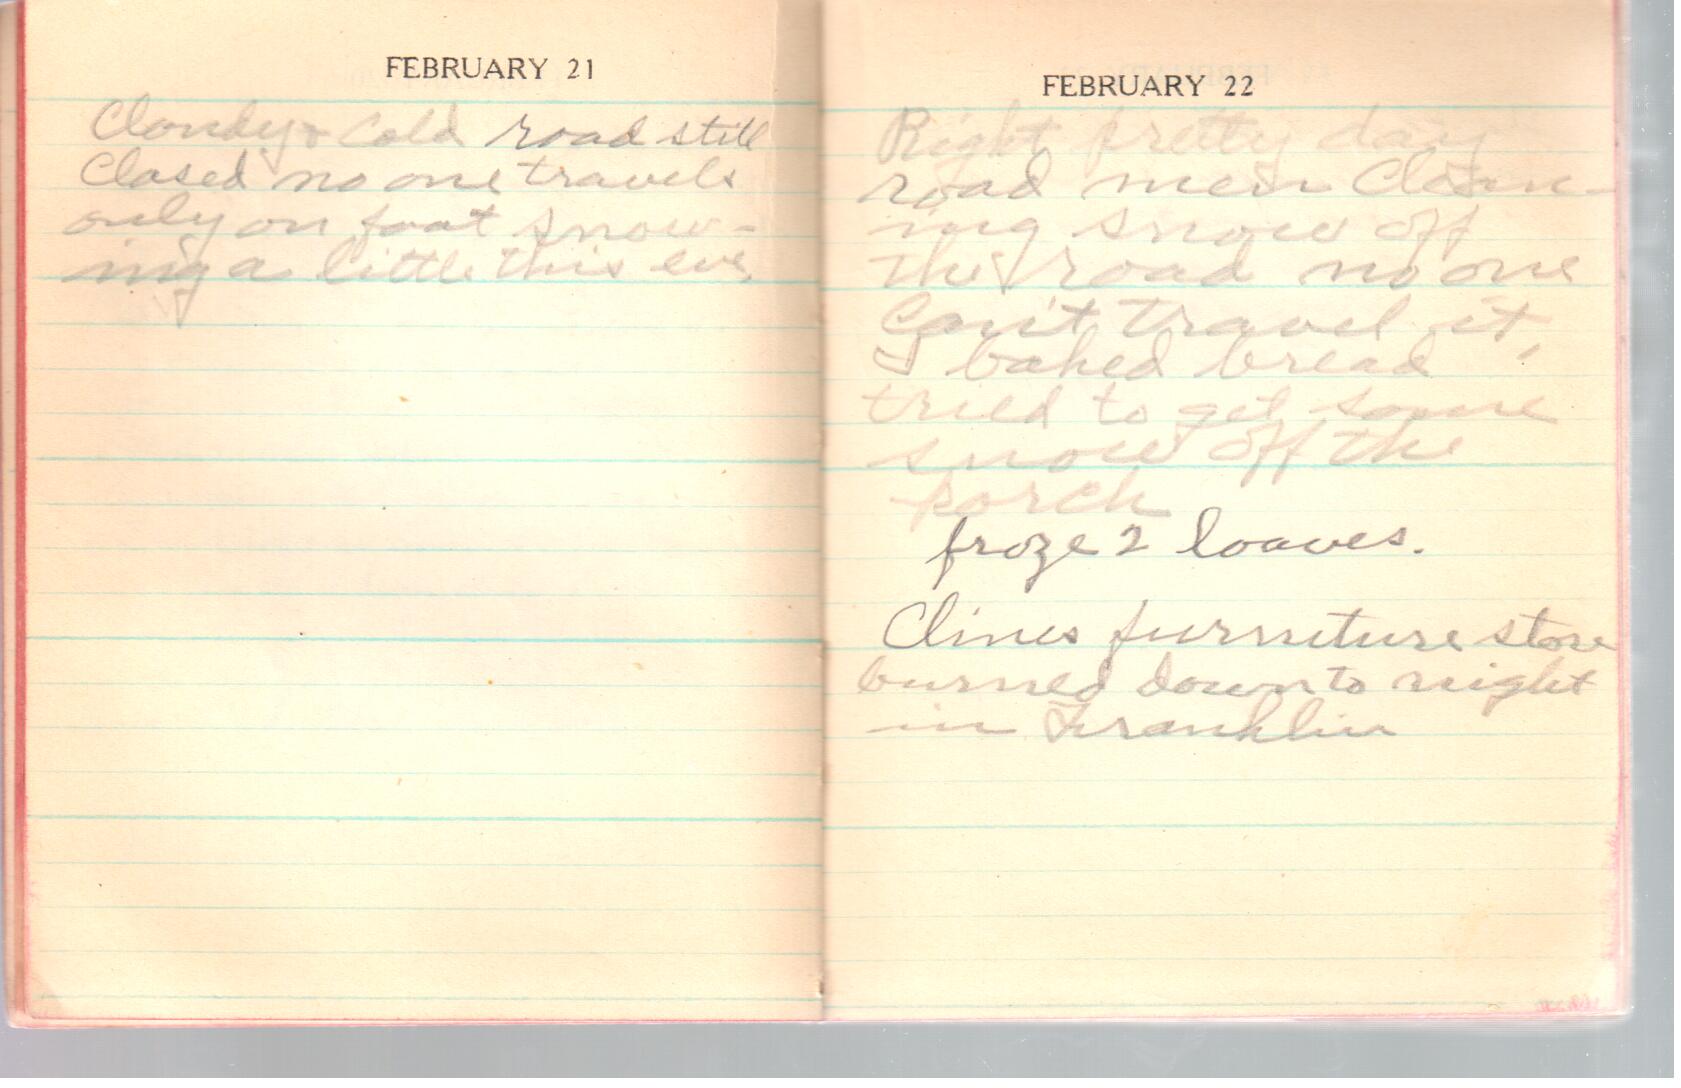 FEBRUARY 21
Cloudy & Cold road still
Closed no one travels
only on foot snow-
ing a little this eve,
FEBRUARY 22
Right pretty day
road men Clean-
ing snow off
the road no one
Can't travel it,
I baked bread
tried to get some
snow off the
porch
froze 2 loaves.
Clines furniture store
burned down to night
in Franklin